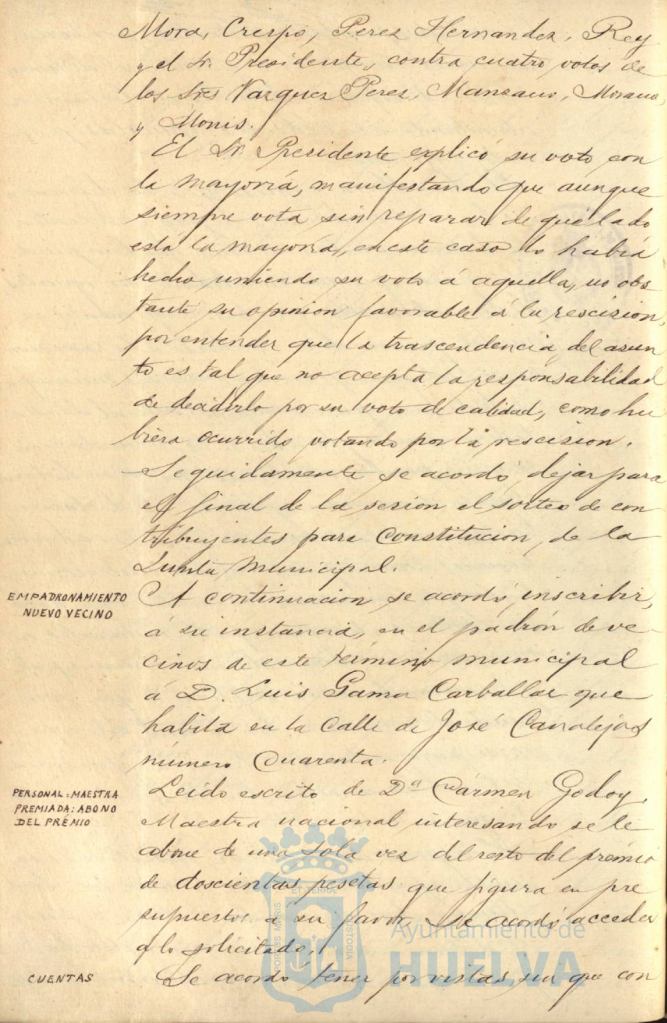 Mora, Crespo, Perez Hernandez, Rey
y el Sr. Presidente, contra cuatro votos de
los Sres Vazquez Perez, Manzano, Morano
y Monis.
El Sr. Presidente explicó su voto con
la mayoría, manifestando que aunque
siempre vota sin reparar de que lado
está la mayoría, en este caso lo había
hecho uniendo su voto á aquella, no obs
tante su opinion favorable á la rescision,
por entender que la trascendencia del asun
to es tal que no acepta la responsabilidad
de decidirlo por su voto de calidad, como hu
biera ocurrido votando por la rescision.
Seguidamente se acordó dejar para
el final de la sesion el sorteo de con
tribuyentes para constitucion de la
Junta Municipal.
EMPADRONAMIENTO
NUEVO VECINO
A continuacion se acordó inscribir,
á su instancia, en el padrón de ve
cinos de este término municipal
á D. Luis Gama Carballar que
habita en la calle de José Canalejas
número Cuarenta.
PERSONAL: MAESTRA
PREMIADA: ABONO
DEL PREMIO
Leido escrito de Dª Cármen Godoy,
Maestra nacional interesando se le
abone de una sola vez del resto del premio
de doscientas pesetas que figura en pre
supuestos a su favor, se acordó acceder
a lo solicitado.
CUENTAS
Se acordó tener por vistas, sin que con
Ayuntamiento de
HUELVA